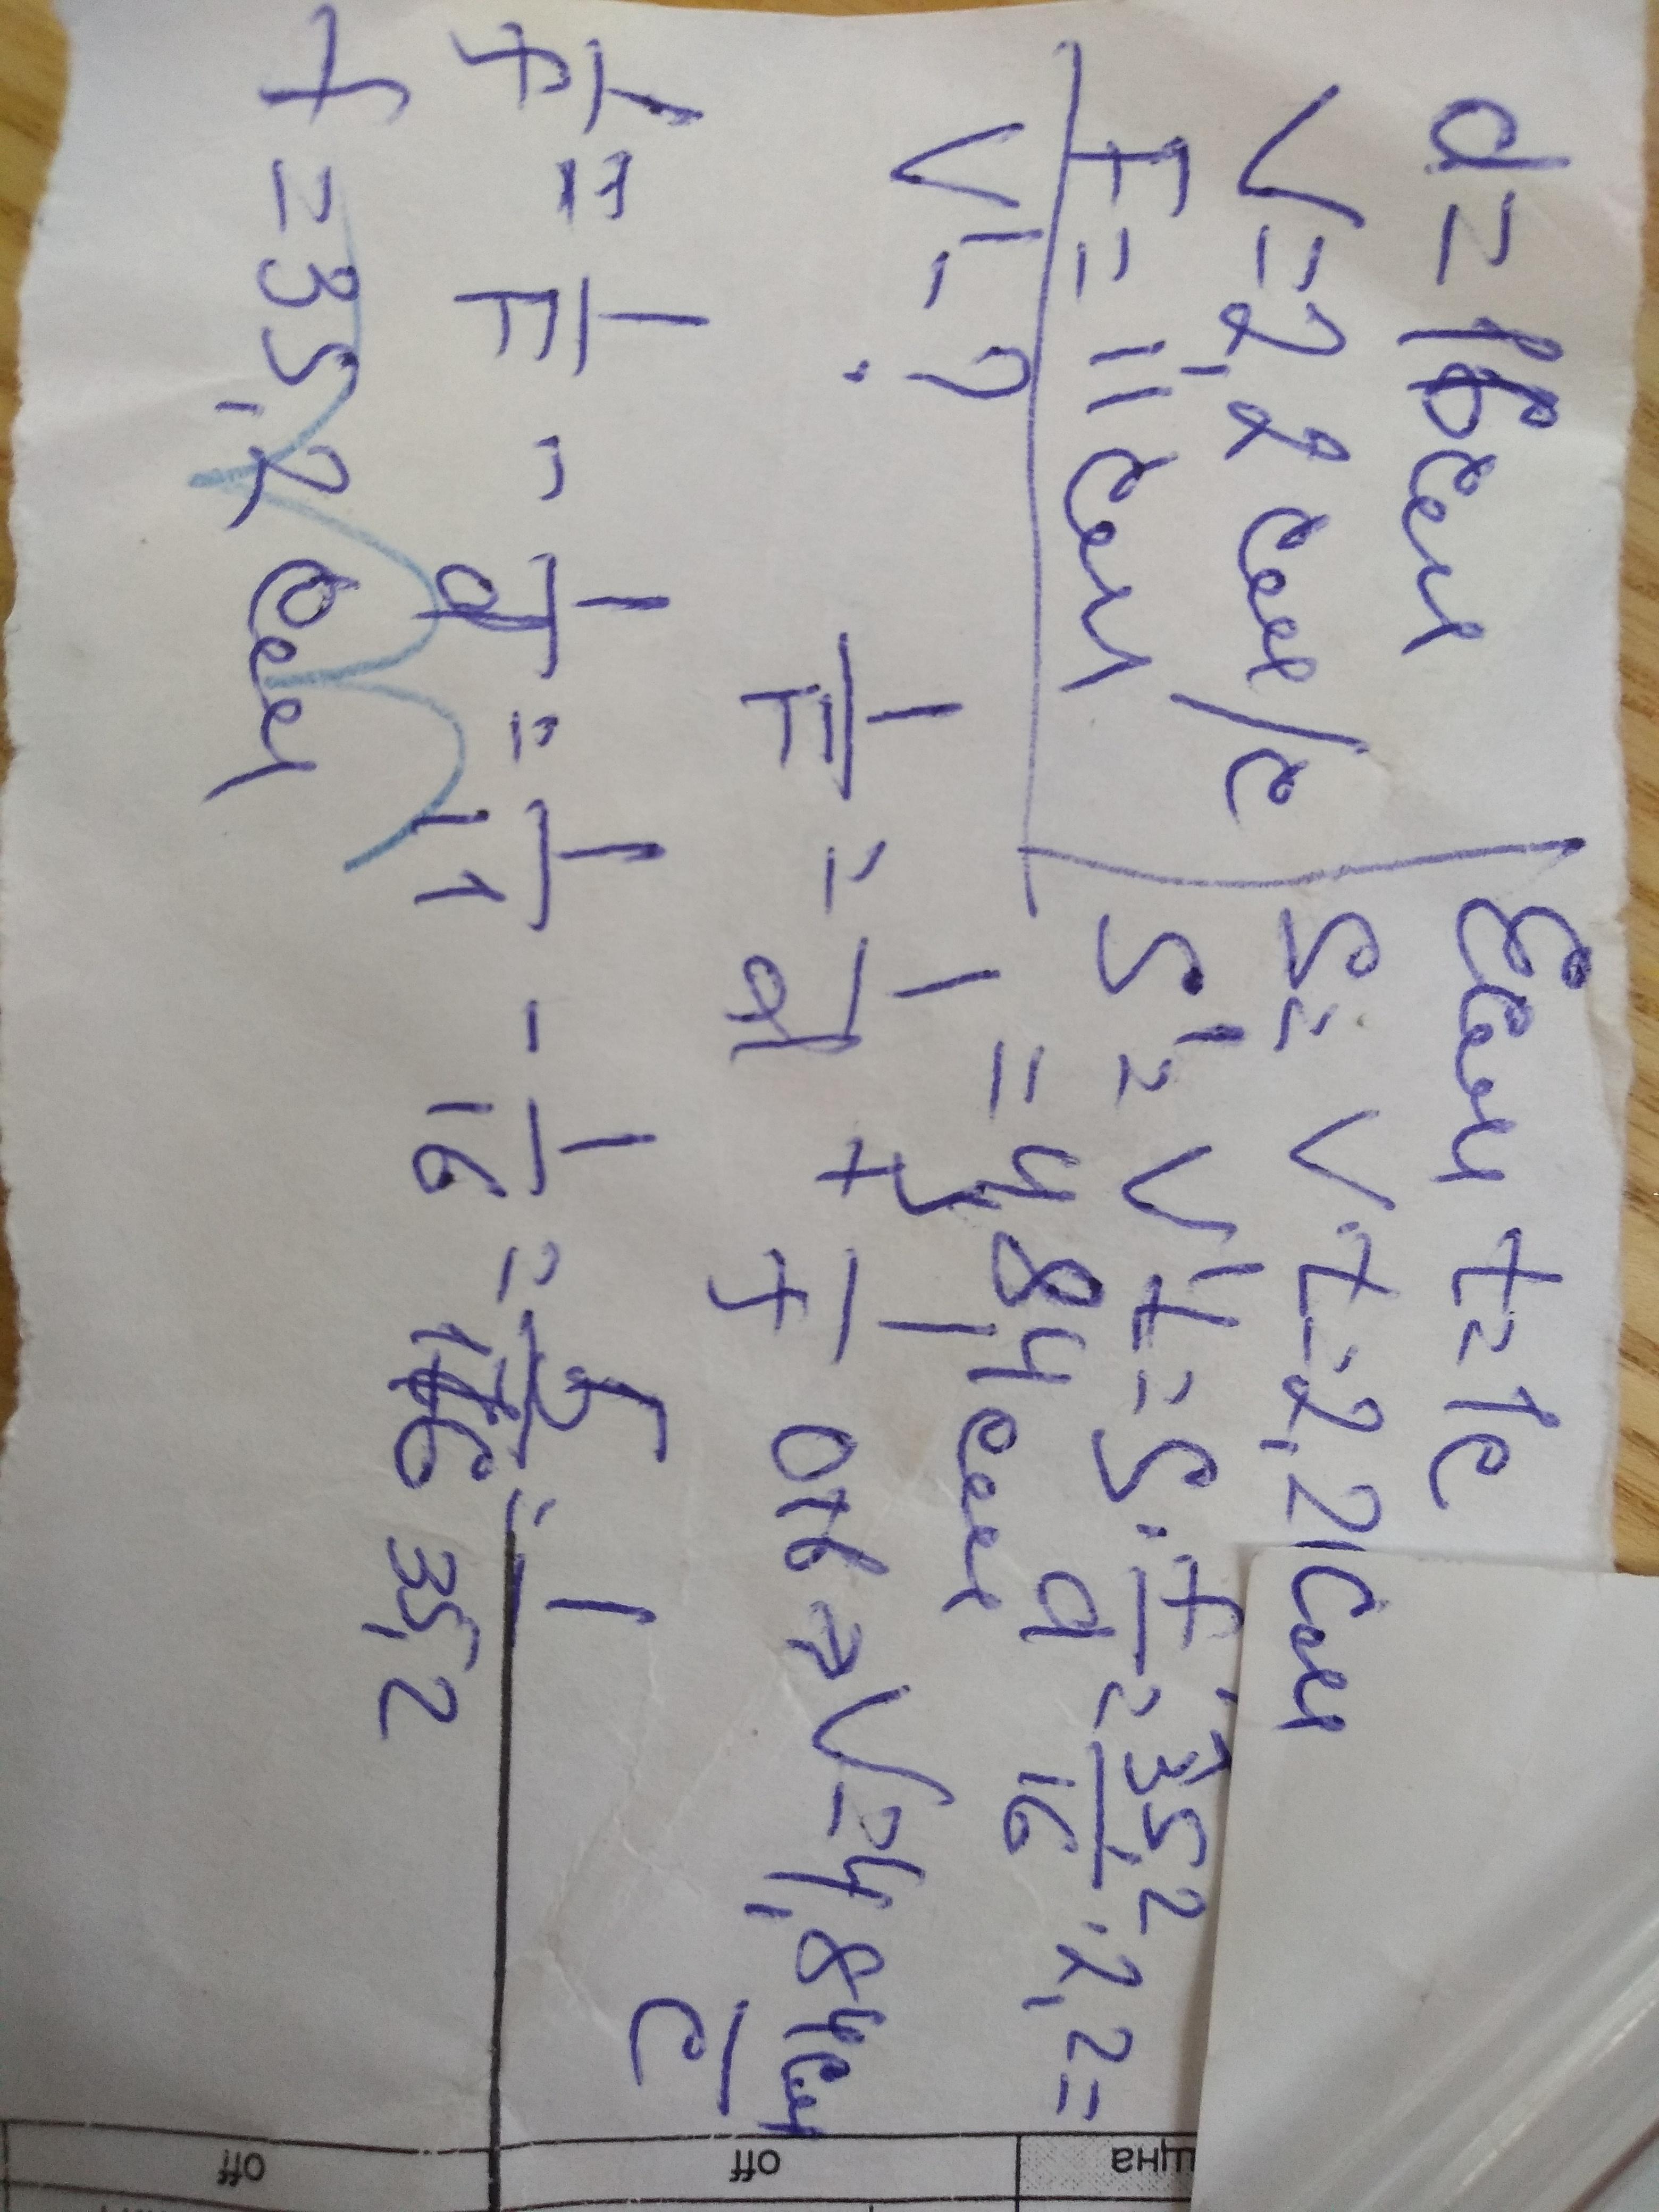 d = 16 см
V = 2,2 см/с
F = 11 см
V' - ?
Если t = 1с
S = V·t = 2,2 см
S' = V't = S·f/d = 35,2/16·2,2 =
= 4,84 см
1/F = 1/d + 1/f Отв => V = 4,84 см/с
1/f = 1/F - 1/d = 1/11 - 1/16 = 5/176 = 1/35,2
f = 35,2 см
щна
off
off